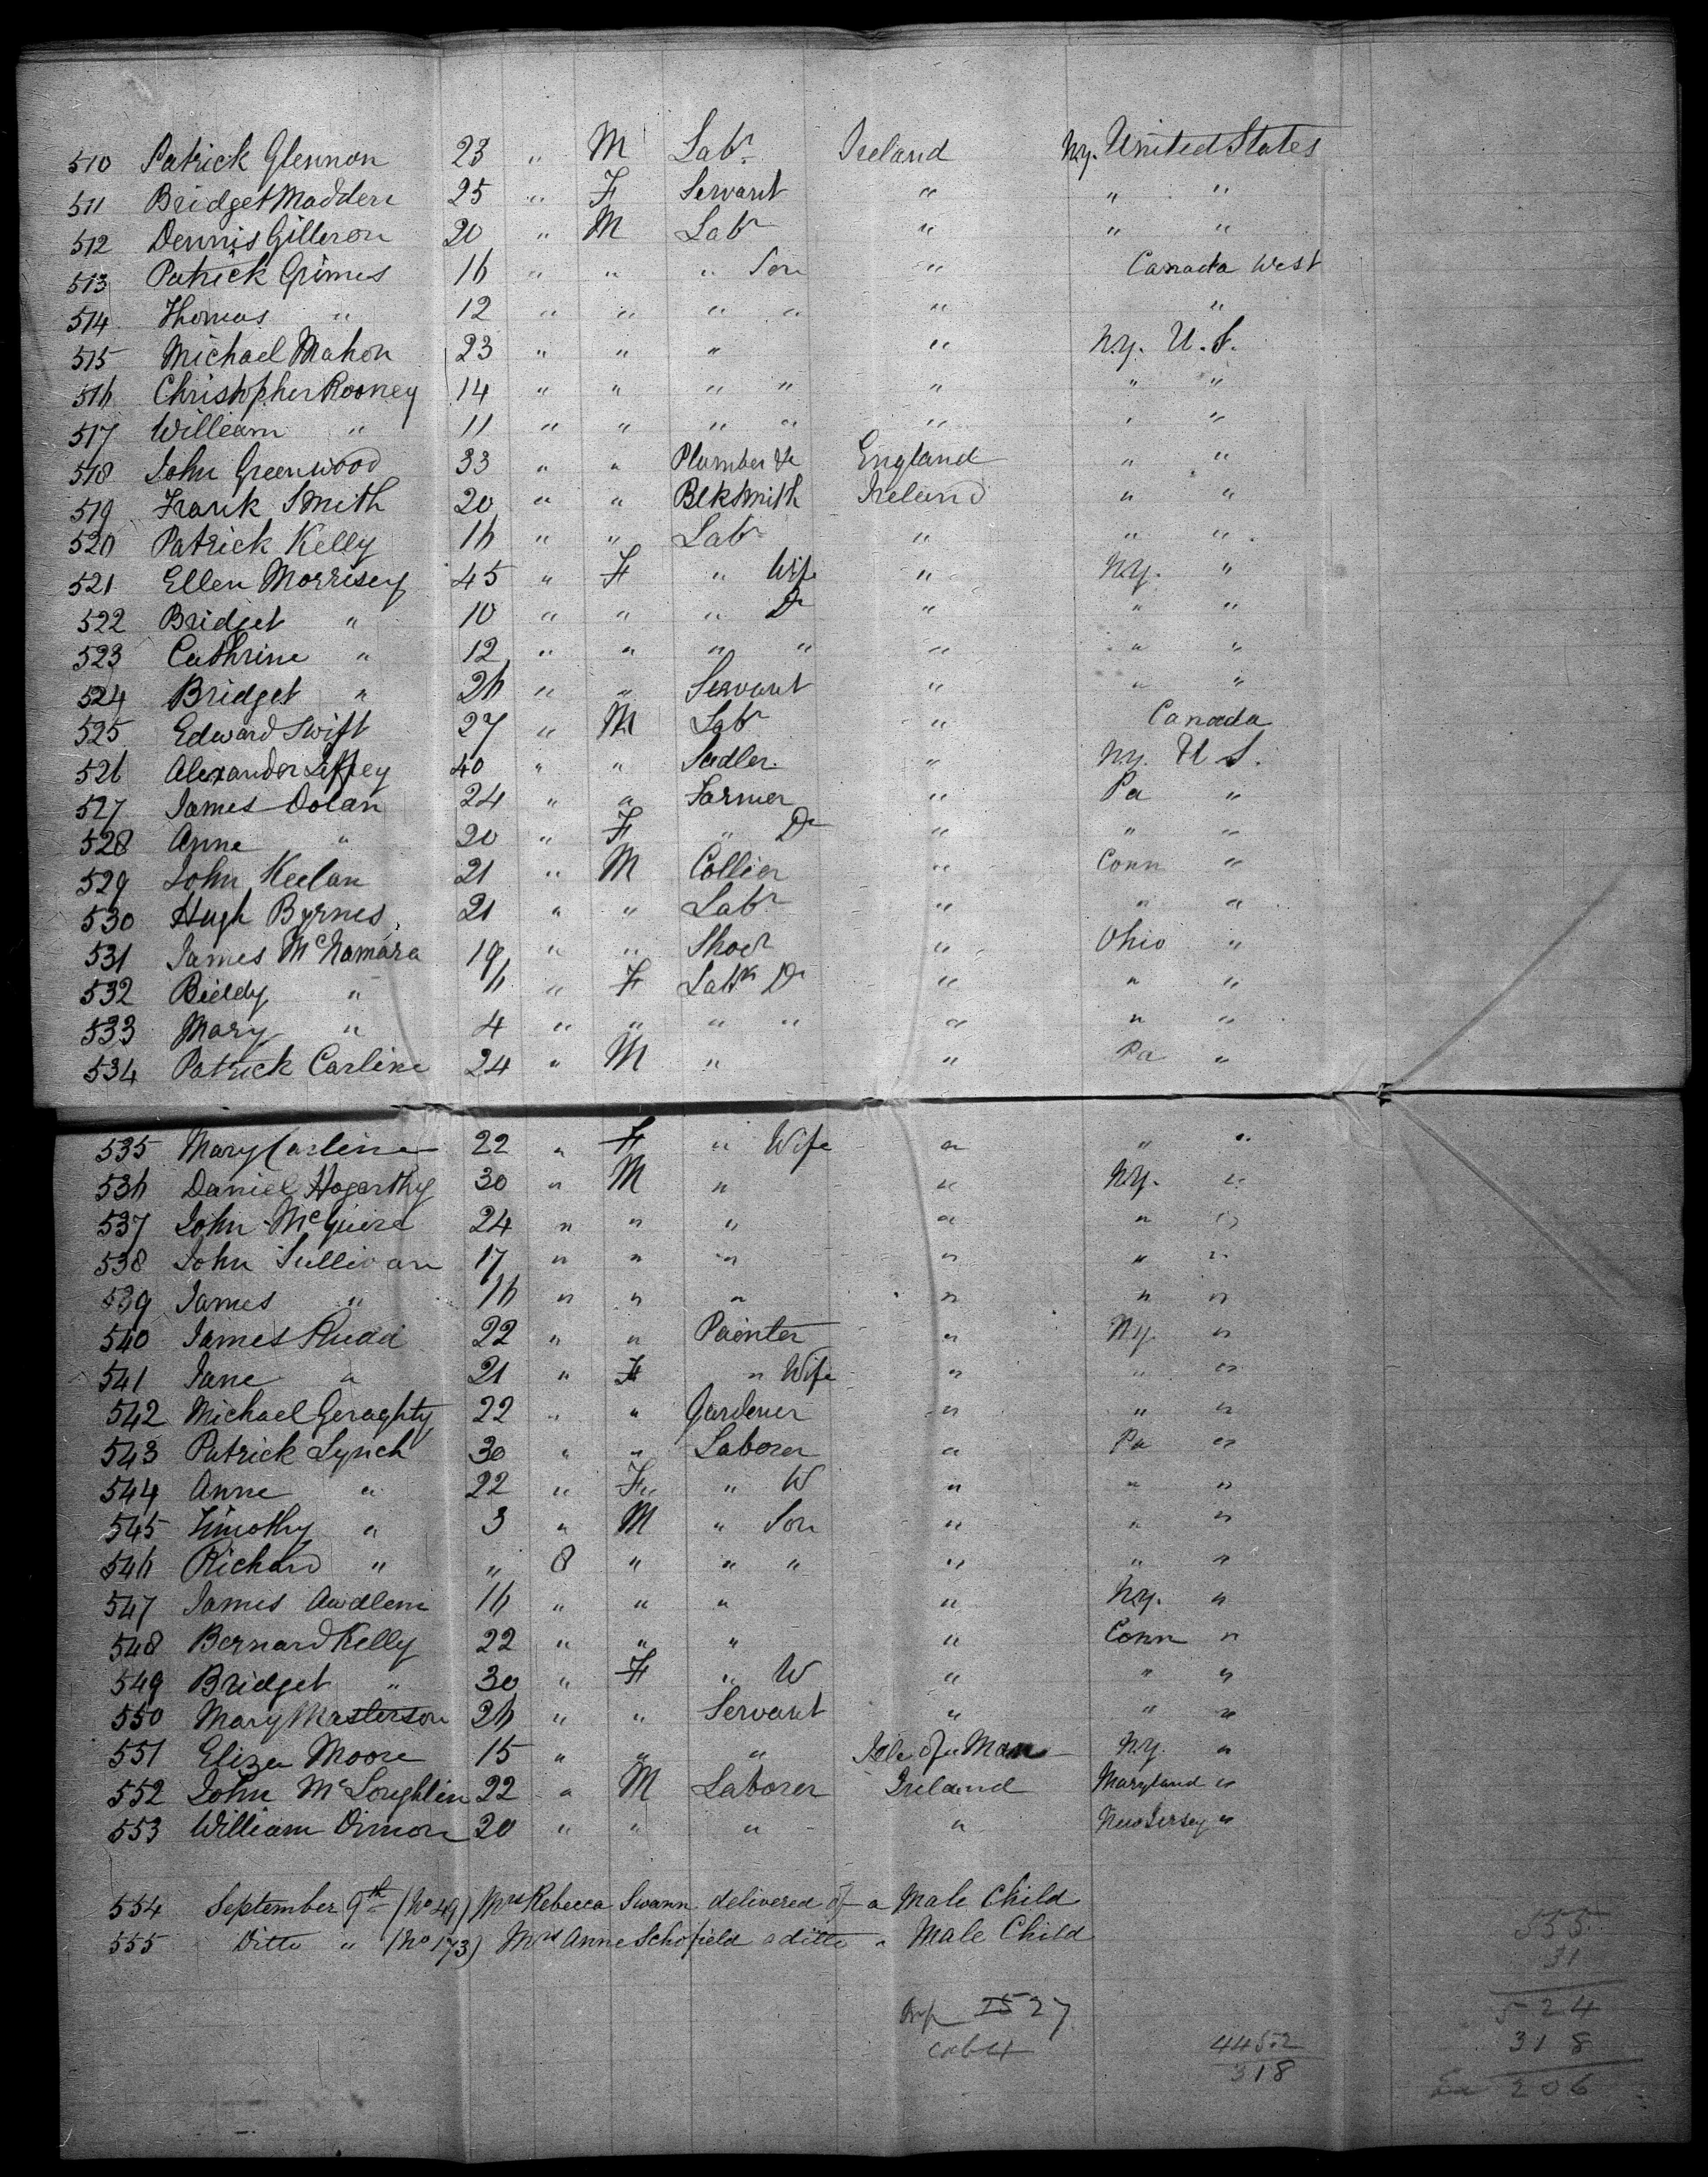 510 Patrick Glennon 23 " M Labr Ireland N.Y. United States
511 Bridget Madden 25 " F Servant " " "
512 Dennis Gilleron 20 " M Labr " " "
513 Patrick Grimes 16 " " " Son " Canada West
514 Thomas " 12 " " " " " "
515 Michael Mahon 23 " " " " N.Y. U.S.
516 Christopher Rooney 14 " " " " " " "
517 William " 11 " " " " " " "
518 John Greenwood 33 " " Plumber &c England " "
519 Frank Smith 20 " " Blksmith Ireland " "
520 Patrick Kelly 16 " " Labr " " "
521 Ellen Morrisey 45 " F " Wife " N.Y. "
522 Bridget " 10 " " " Dr " " "
523 Cathrine " 12 " " " " " " "
524 Bridget " 26 " " Servant " " "
525 Edward Swift 27 " M Labr " Canada
526 Alexander 40 " " Sadler " N.Y. U S.
527 James Dolan 24 " " Farmer " Pa "
528 Anne " 20 " F " Dr " " "
529 John Keelan 21 " M Collier " Conn "
530 Hugh Byrnes 21 " " Labr " " "
531 James McNamara 19 " " Shoer " Ohio "
532 Biddy " 6 " F Labr Dr " " "
533 Mary " 4 " " " " " " "
534 Patrick Carline 24 " M " " Pa "
535 Mary Carline 22 " F " Wife " " "
536 Daniel Hogarthy 30 " M " " N.Y. "
537 John McGuire 24 " " " " " "
538 John Sullivan 17 " " " " " "
539 James " 16 " " " " " "
540 James Rudd 22 " " Painter " N.Y. "
541 Jane " 21 " F " Wife " " "
542 Michael Geraghty 22 " " Gardener " " "
543 Patrick Lynch 30 " " Laborer " Pa "
544 Anne " 22 " F " W " " "
545 Timothy " 3 " M " Son " " "
546 Richard " " 8 " " " " " "
547 James 16 " " " " N.Y. "
548 Bernard Kelly 22 " " " " Conn "
549 Bridget " 30 " F " W " " "
550 Mary Masterson 26 " " Servant " " "
551 Eliza Moore 15 " " " Isle of Man N.Y. "
552 John McLoughlin 22 " M Laborer Ireland Maryland "
553 William Dimon 20 " " " " New Jersey "
554 September 9th (No 49) Mrs Rebecca Swann delivered of a Male Child
555 Ditto " (No 173) Mrs Anne Schofield a ditto " Male Child
555
31
524
318
206
27
4452
318